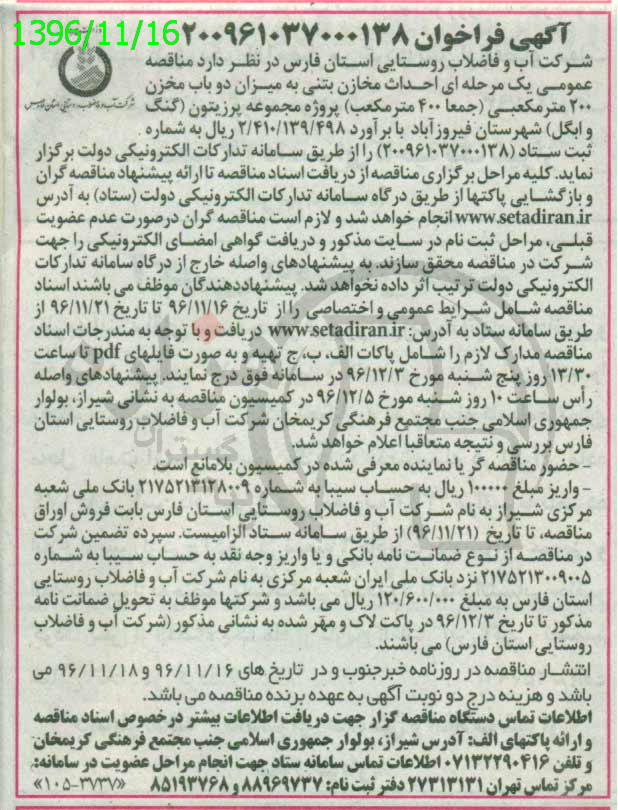 1396/11/16
آگهی فراخوان ۲۰۰۹۶۱۰۳۷۰۰۰۱۳۸
شرکت آب و فاضلاب روستایی استان فارس در نظر دارد مناقصه
عمومی یک مرحله ای احداث مخازن بتنی به میزان دو باب مخزن
۲۰۰ مترمکعبی (جمعا ۴۰۰ مترمکعب) پروژه مجموعه پرزیتون (گنگ
و ابگل) شهرستان فیروزآباد با برآورد ۲/۴۱۰/۱۳۹/۴۹۸ ریال به شماره
ثبت ستاد (۲۰۰۹۶۱۰۳۷۰۰۰۱۳۸) را از طریق سامانه تدارکات الکترونیکی دولت برگزار
نماید. کلیه مراحل برگزاری مناقصه از دریافت اسناد مناقصه تا ارائه پیشنهاد مناقصه گران
و بازگشایی پاکتها از طریق درگاه سامانه تدارکات الکترونیکی دولت (ستاد) به آدرس
www.setadiran.ir انجام خواهد شد و لازم است مناقصه گران درصورت عدم عضویت
قبلی، مراحل ثبت نام در سایت مذکور و دریافت گواهی امضای الکترونیکی را جهت
شرکت در مناقصه محقق سازند. به پیشنهادهای واصله خارج از درگاه سامانه تدارکات
الکترونیکی دولت ترتیب اثر داده نخواهد شد. پیشنهاددهندگان موظف می باشند اسناد
مناقصه شامل شرایط عمومی و اختصاصی را از تاریخ ۹۶/۱۱/۱۶ تا تاریخ ۹۶/۱۱/۲۱ از
طریق سامانه ستاد به آدرس: www.setadiran.ir دریافت و با توجه به مندرجات اسناد
مناقصه مدارک لازم را شامل پاکات الف، ب، ج تهیه و به صورت فایلهای pdf تا ساعت
۱۳/۳۰ روز پنج شنبه مورخ ۹۶/۱۲/۳ در سامانه فوق درج نمایند. پیشنهادهای واصله
رأس ساعت ۱۰ روز شنبه مورخ ۹۶/۱۲/۵ در کمیسیون مناقصه به نشانی شیراز، بولوار
جمهوری اسلامی جنب مجتمع فرهنگی کریمخان شرکت آب و فاضلاب روستایی استان
فارس بررسی و نتیجه متعاقبا اعلام خواهد شد.
- حضور مناقصه گر یا نماینده معرفی شده در کمیسیون بلامانع است.
- واریز مبلغ ۱۰۰۰۰۰ ریال به حساب سیبا به شماره ۲۱۷۵۲۱۳۱۲۸۰۰۹ بانک ملی شعبه
مرکزی شیراز به نام شرکت آب و فاضلاب روستایی استان فارس بابت فروش اوراق
مناقصه، تا تاریخ (۹۶/۱۱/۲۱) از طریق سامانه ستاد الزامیست. سپرده تضمین شرکت
در مناقصه از نوع ضمانت نامه بانکی و یا واریز وجه نقد به حساب سیبا به شماره
۲۱۷۵۲۱۳۰۰۹۰۰۵ نزد بانک ملی ایران شعبه مرکزی به نام شرکت آب و فاضلاب روستایی
استان فارس به مبلغ ۱۲۰/۶۰۰/۰۰۰ ریال می باشد و شرکتها موظف به تحویل ضمانت نامه
مذکور تا تاریخ ۹۶/۱۲/۳ در پاکت لاک و مهر شده به نشانی مذکور (شرکت آب و فاضلاب
روستایی استان فارس) می باشند.
انتشار مناقصه در روزنامه خبرجنوب و در تاریخ های ۹۶/۱۱/۱۶ و ۹۶/۱۱/۱۸ می
باشد و هزینه درج دو نوبت آگهی به عهده برنده مناقصه می باشد.
اطلاعات تماس دستگاه مناقصه گزار جهت دریافت اطلاعات بیشتر درخصوص اسناد مناقصه
و ارائه پاکتهای الف: آدرس شیراز، بولوار جمهوری اسلامی جنب مجتمع فرهنگی کریمخان
و تلفن ۰۷۱۳۲۲۹۰۴۱۶ اطلاعات تماس سامانه ستاد جهت انجام مراحل عضویت در سامانه:
مرکز تماس تهران ۲۷۳۱۳۱۳۱ دفتر ثبت نام: ۸۸۹۶۹۷۳۷ و ۸۵۱۹۳۷۶۸ «۱۰۵-۳۷۳۷»
شرکت آب و فاضلاب روستایی استان فارس